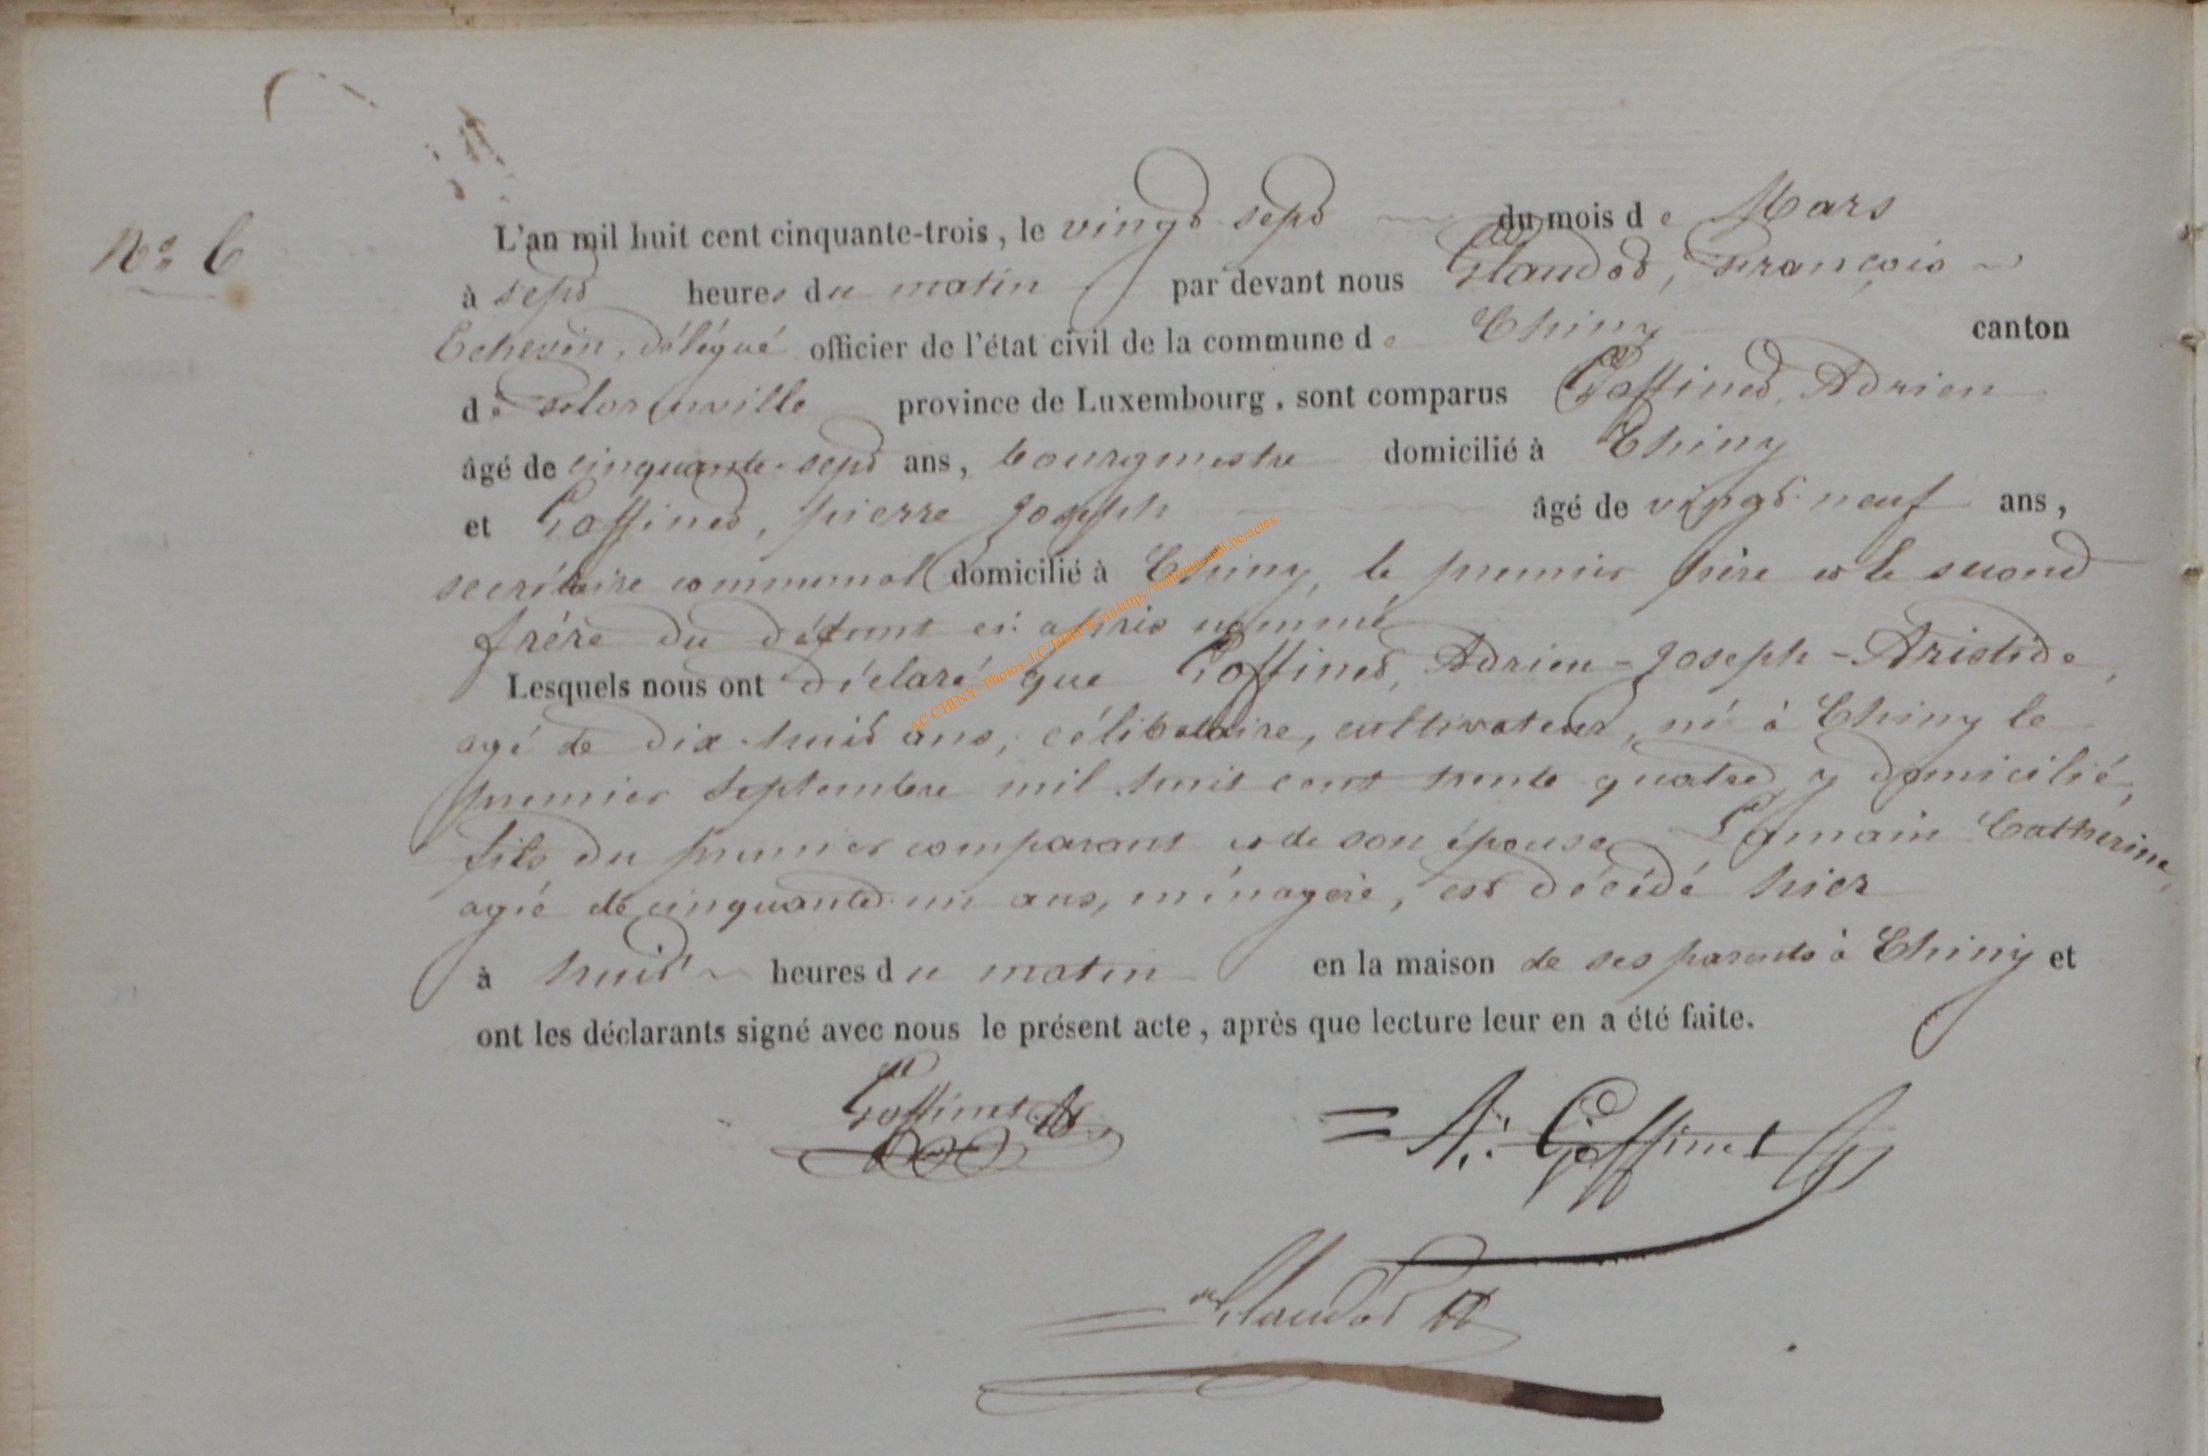 N° 6
L'an mil huit cent cinquante-trois, le vingt sept du mois de Mars
à sept heures du matin par devant nous Glaudot, François
Echevin, délégué officier de l'état civil de la commune de Chiny canton
de Florenville province de Luxembourg, sont comparus Goffinet, Adrien
âgé de cinquante-sept ans, bourgmestre domicilié à Chiny
et Goffinet, pierre Joseph âgé de vingt-neuf ans,
secrétaire communal domicilié à Chiny, le premier père et le second
frère du défunt ci-après nommé
Lesquels nous ont déclaré que Goffinet, Adrien-Joseph-Aristide,
agé de dix-huit ans, célibataire, cultivateur, né à Chiny le
premier Septembre mil huit cent trente quatre, y domicilié,
fils du premier comparant et de son épouse Catherine,
agée de cinquante-un ans, ménagère, est décédé hier
à huit heures du matin en la maison de ses parents à Chiny et
ont les déclarants signé avec nous le présent acte, après que lecture leur en a été faite.
Goffinet
A. Goffinet
Glaudot
AC CHINY - Photos: J.C. via http://wallonia-asbl.be/actes